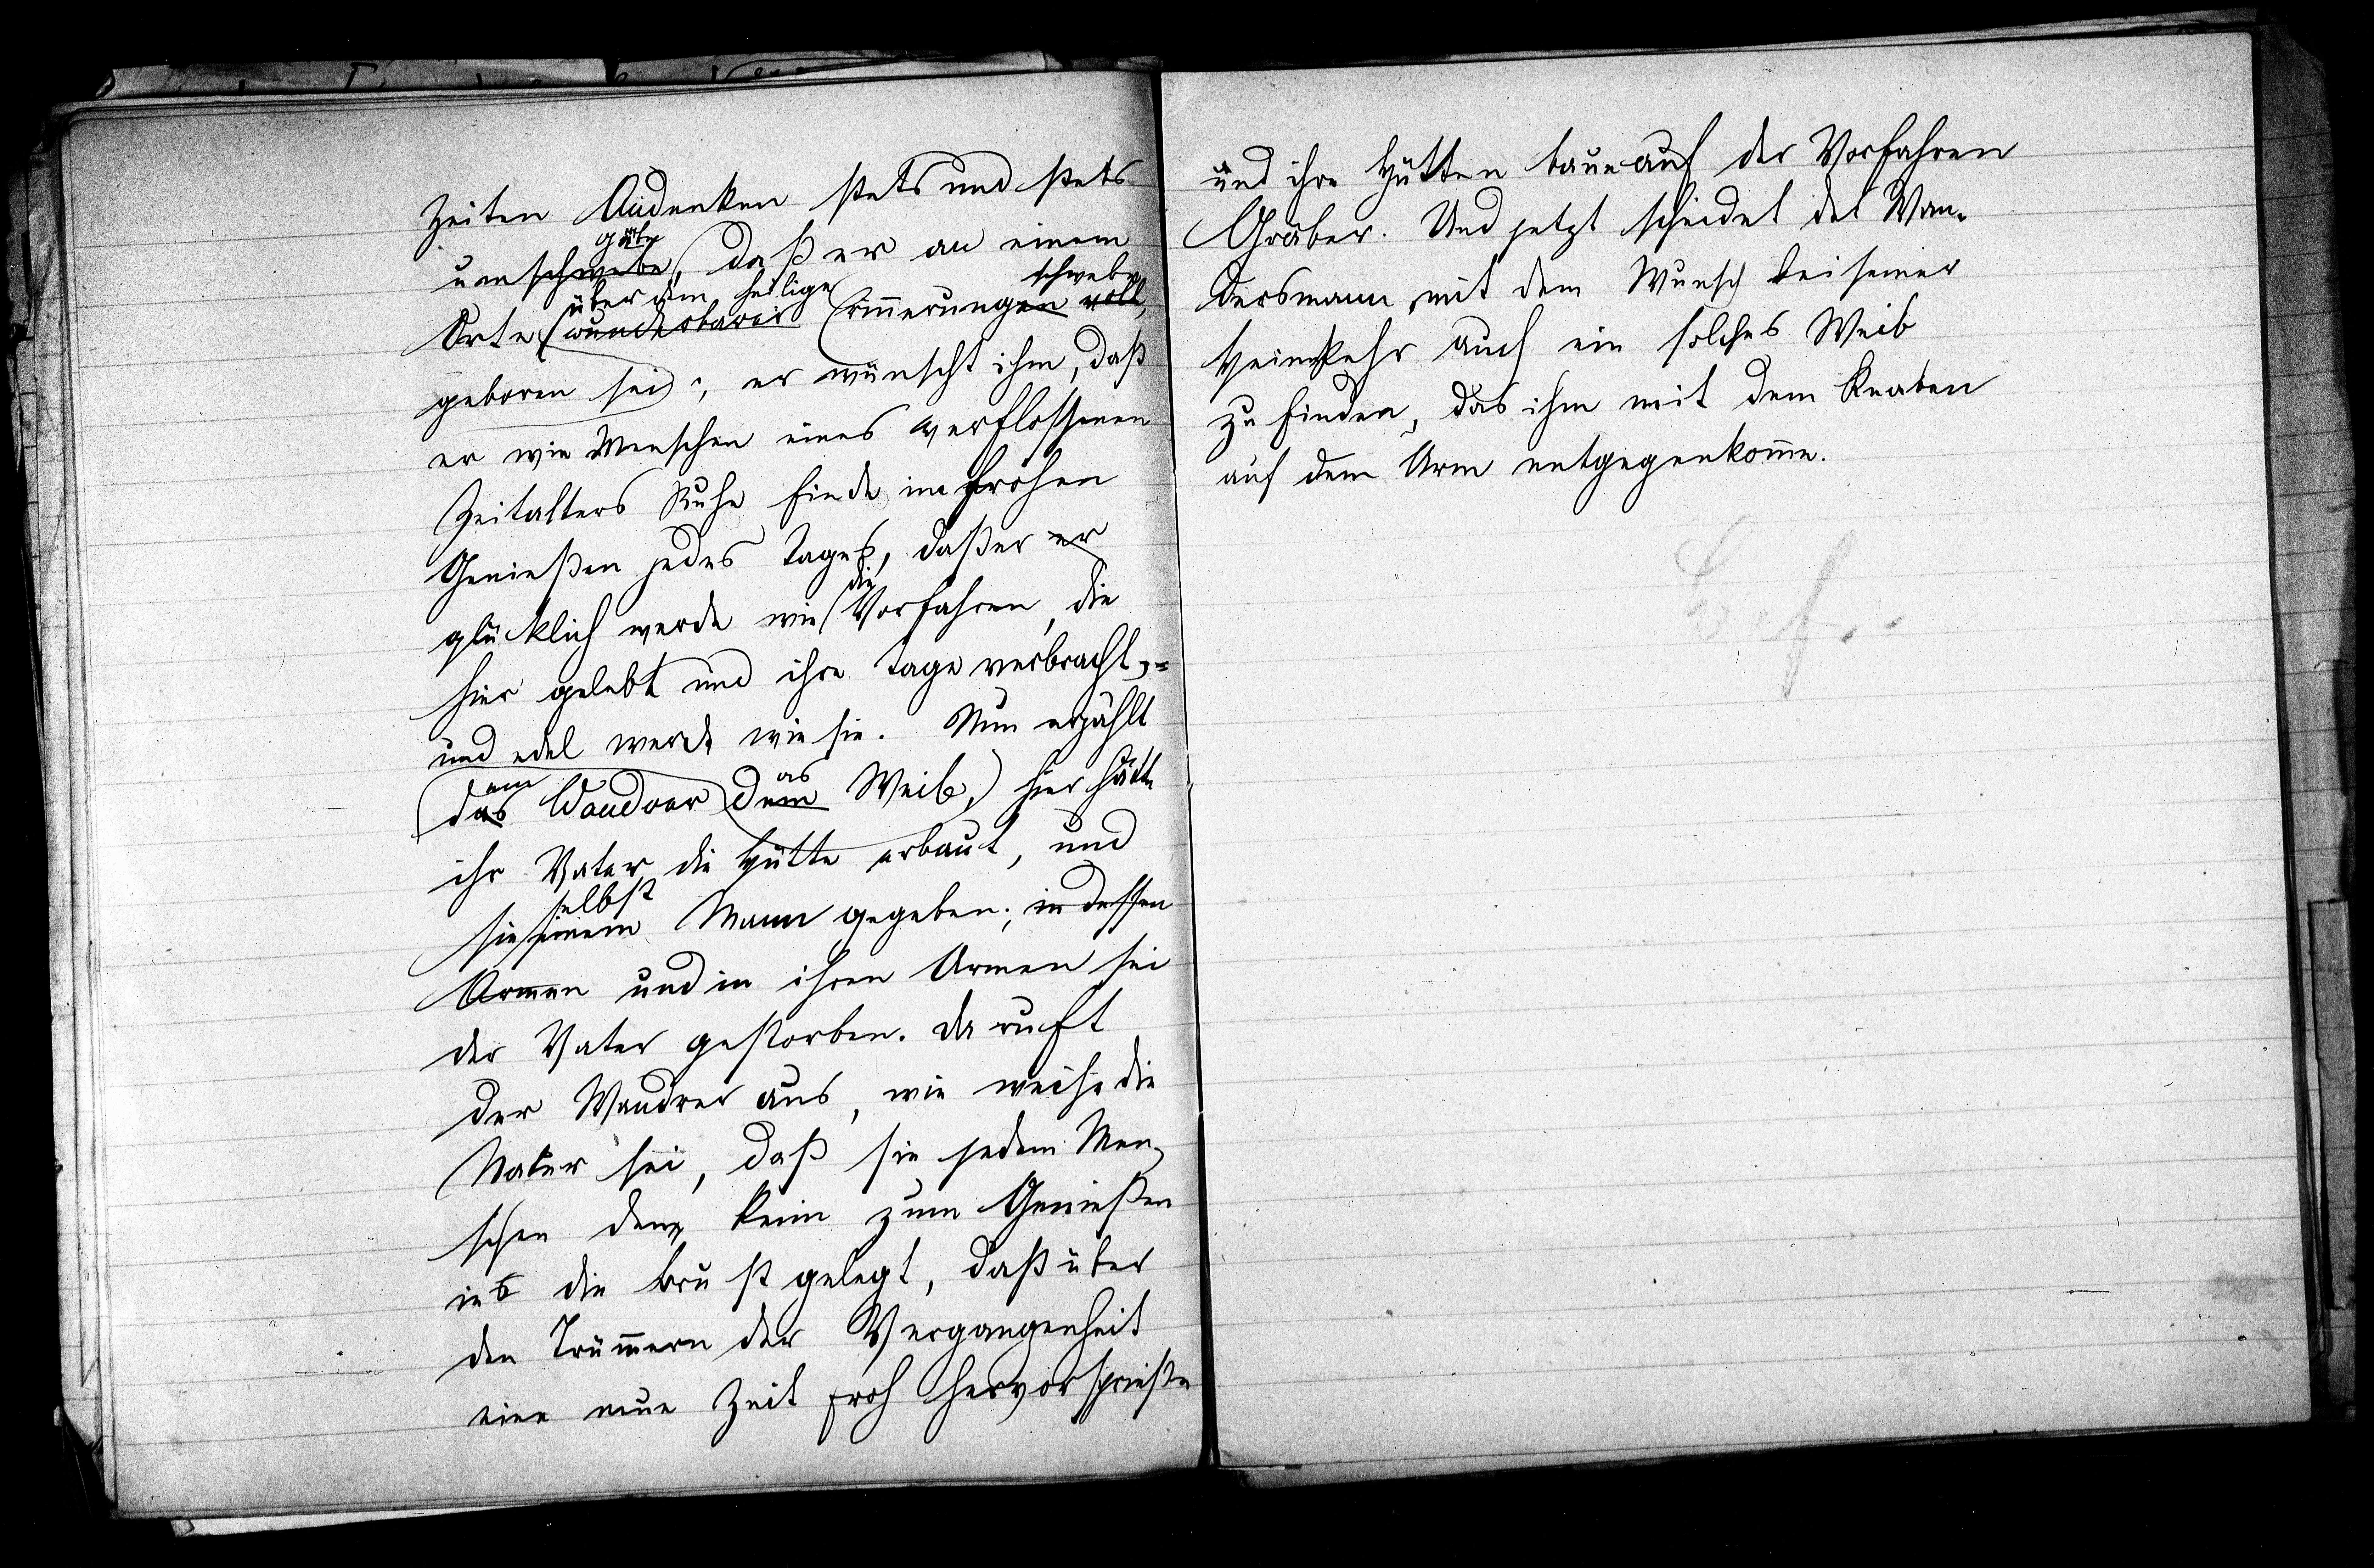 Zeiten Andenken stets und stets
gebe
umschwebe, daß er an einem
über dem heilige schwebe
Orte wunderbarer Erinnerungen voll,
geboren sei; er wünscht ihm, daß
er wie Menschen eines verflossenen
Zeitalters Ruhe finde im frohen
Genießen jedes Tages, daß er er
die
glücklich werde wie Vorfahren, die
hier gelebt und ihre Tage verbracht,
und edel werde wie sie. Nun erzählt
em as
das Wandrer dem Weib, hier hätte
ihr Vater die Hütte erbaut, und
selbst
sie einem Mann gegeben; in dessen
Armen und in ihren Armen sei
der Vater gestorben. Da ruft
der Wandrer aus, wie weise die
Natur sei, daß sie jedem Men-
schen den Keim zum Genießen
in die Brust gelegt, daß über
den Trümmern der Vergangenheit
eine neue Zeit froh hervorsprieße
und ihre Hütten baue auf der Vorfahren
Gräber. Und jetzt scheidet der Wan-
dersmann mit dem Wunsch bei seiner
Heimkehr auch ein solches Weib
zu finden, das ihm mit dem Knaben
auf dem Arm entgegenkomme.